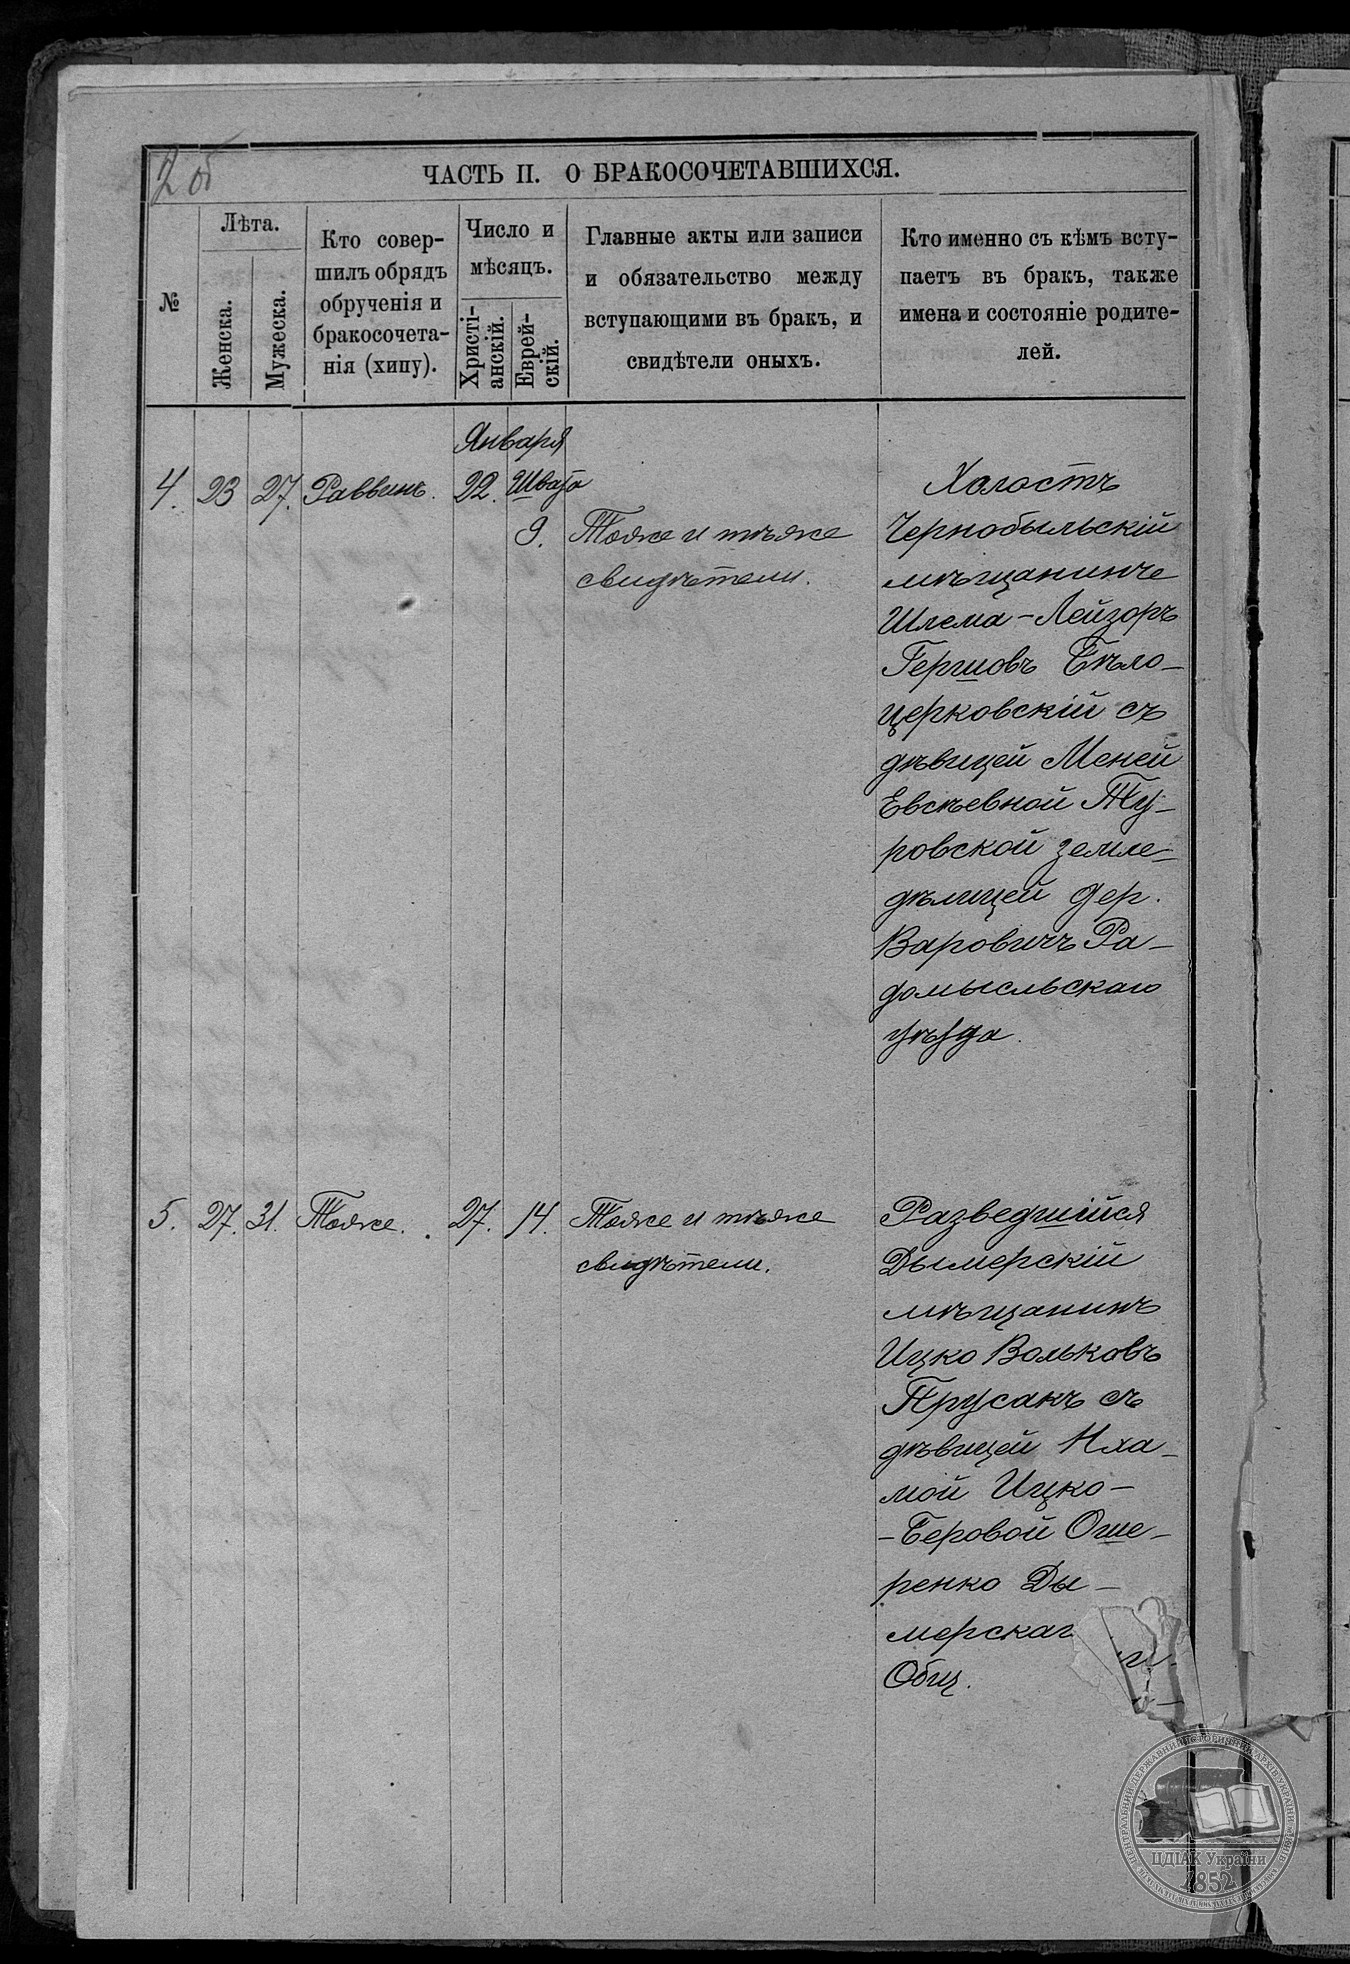 2 об
ЧАСТЬ II. О БРАКОСОЧЕТАВШИХСЯ.
№
Лѣта.
Женска.
Мужеска.
Кто совер-
шилъ обрядъ
обрученія и
бракосочета-
нія (хипу).
Число и
мѣсяцъ.
Христі-
анскій.
Еврей-
скій.
Главные акты или записи
и обязательство между
вступающими въ бракъ, и
свидѣтели оныхъ.
Кто именно съ кѣмъ всту-
паетъ въ бракъ, также
имена и состояніе родите-
лей.
Января
4. 23 27. Раввинъ. 22. Швата
9.
Тоже и тѣже
свидѣтели.
Холостъ
Чернобыльскій
мѣщанинъ
Шлема-Лейзоръ
Гершовъ Бѣло-
церковскій съ
дѣвицей Меней
Евсѣевной Ту-
ровской земле-
дѣлицей дер.
Варовичъ Ра-
домысльскаго
уѣзда.
5. 27. 31. Тоже. 27. 14. Тоже и тѣже
свидѣтели.
Разведшійся
Дымерскій
мѣщанинъ
Ицко Вольковъ
Прусакъ съ
дѣвицей Нха-
мой Ицко-
-Беровой Оше-
ренко Ды-
мерскаг
Общ.
ЦЕНТРАЛЬНИЙ ДЕРЖАВНИЙ ІСТОРИЧНИЙ АРХІВ УКРАЇНИ
ЦДІАК України
1852